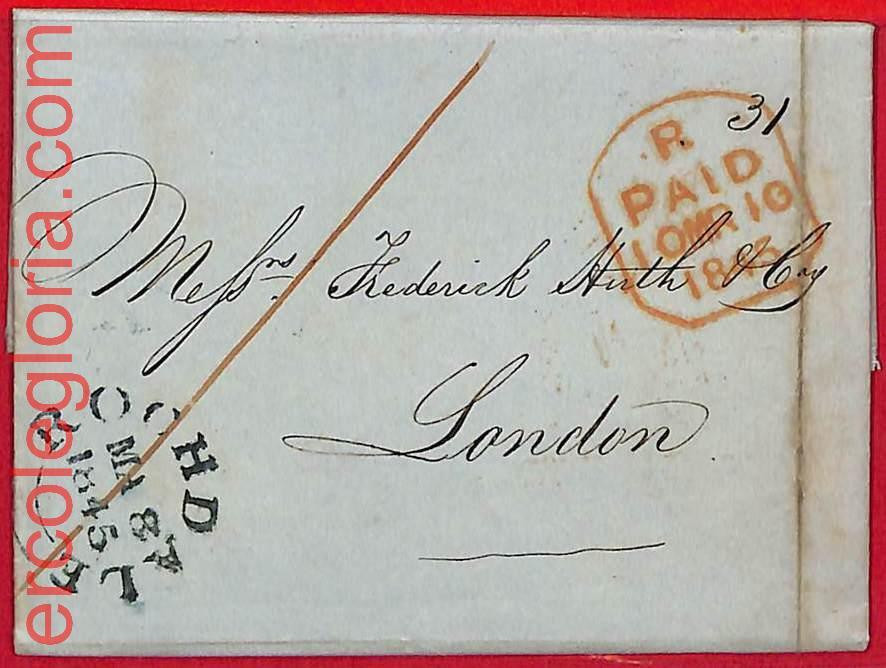 31
R
PAID
10 MR 10
1845
Messrs. Frederick Huth & Coy
London
ROCHDALE
MR 8
1845
ercolegloria.com